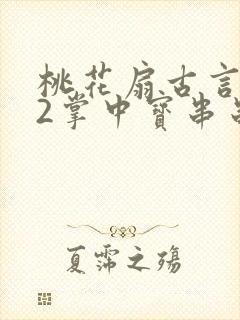 桃花扇古言
2掌中寶串
夏霈之殤